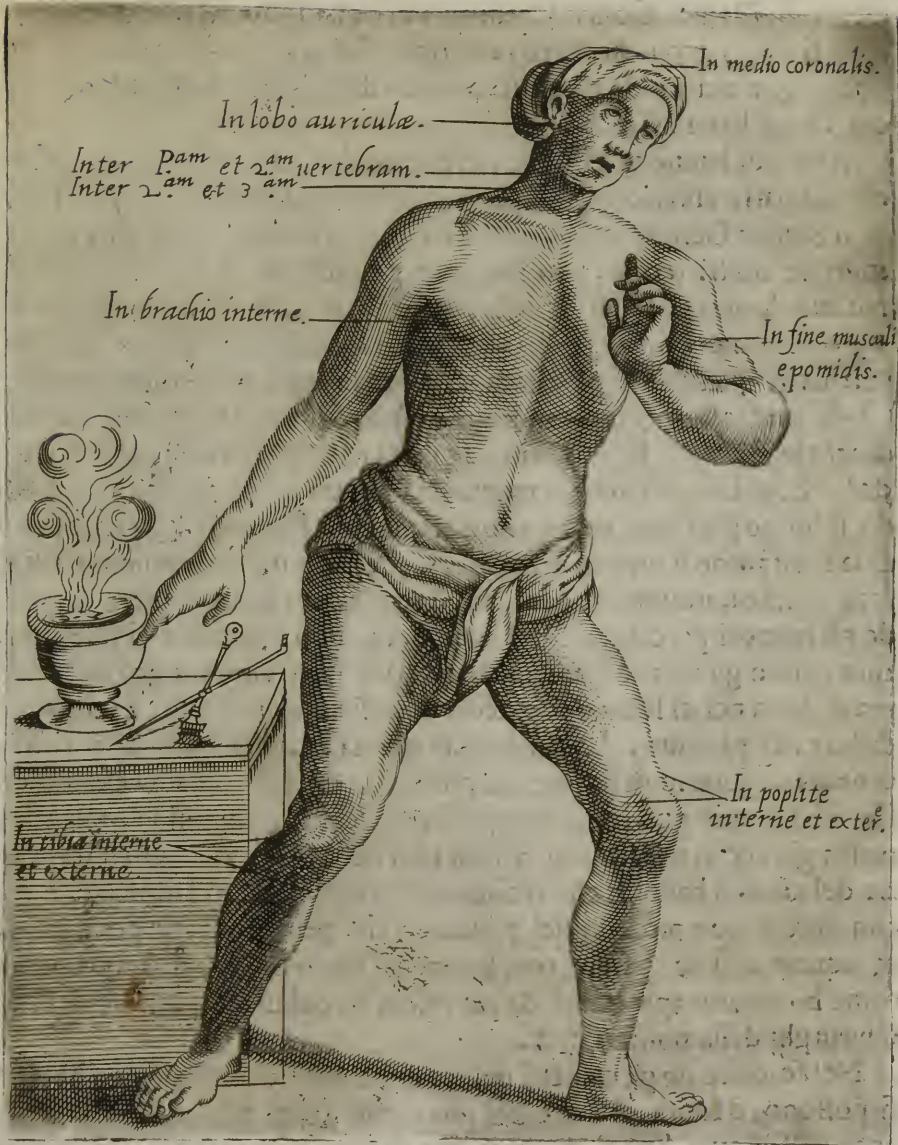 In medio coronalis.
In lobo auriculæ.
Inter P.am et 2.am uertebram.
Inter 2.am et 3.am
In brachio interne.
In fine musculi
epomidis.
In poplite
interne et extere.
In tibia interne
et externe.